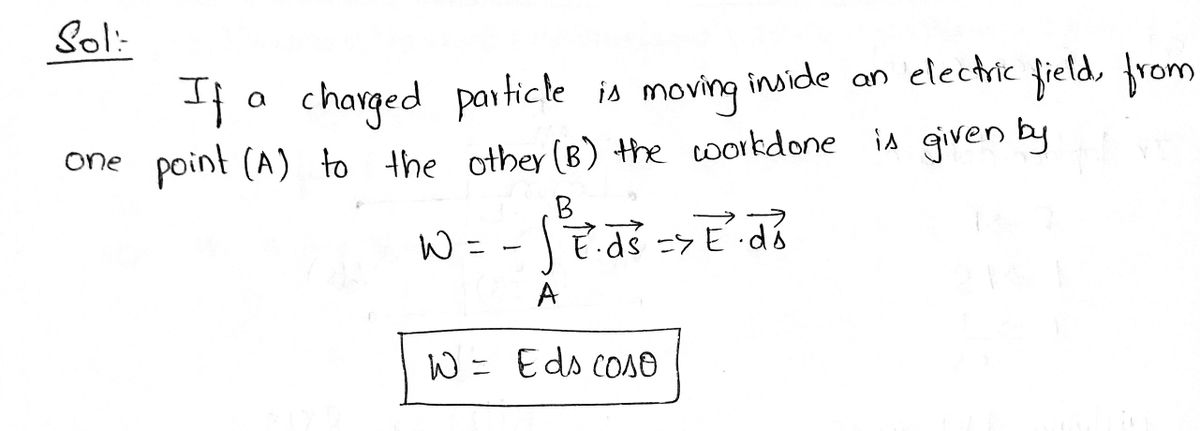 Sol:-
If a charged particle is moving inside an electric field, from
one point (A) to the other (B) the workdone is given by
B
W = - ∫ E⃗.ds⃗ => E⃗.ds⃗
A
W = E ds cosθ